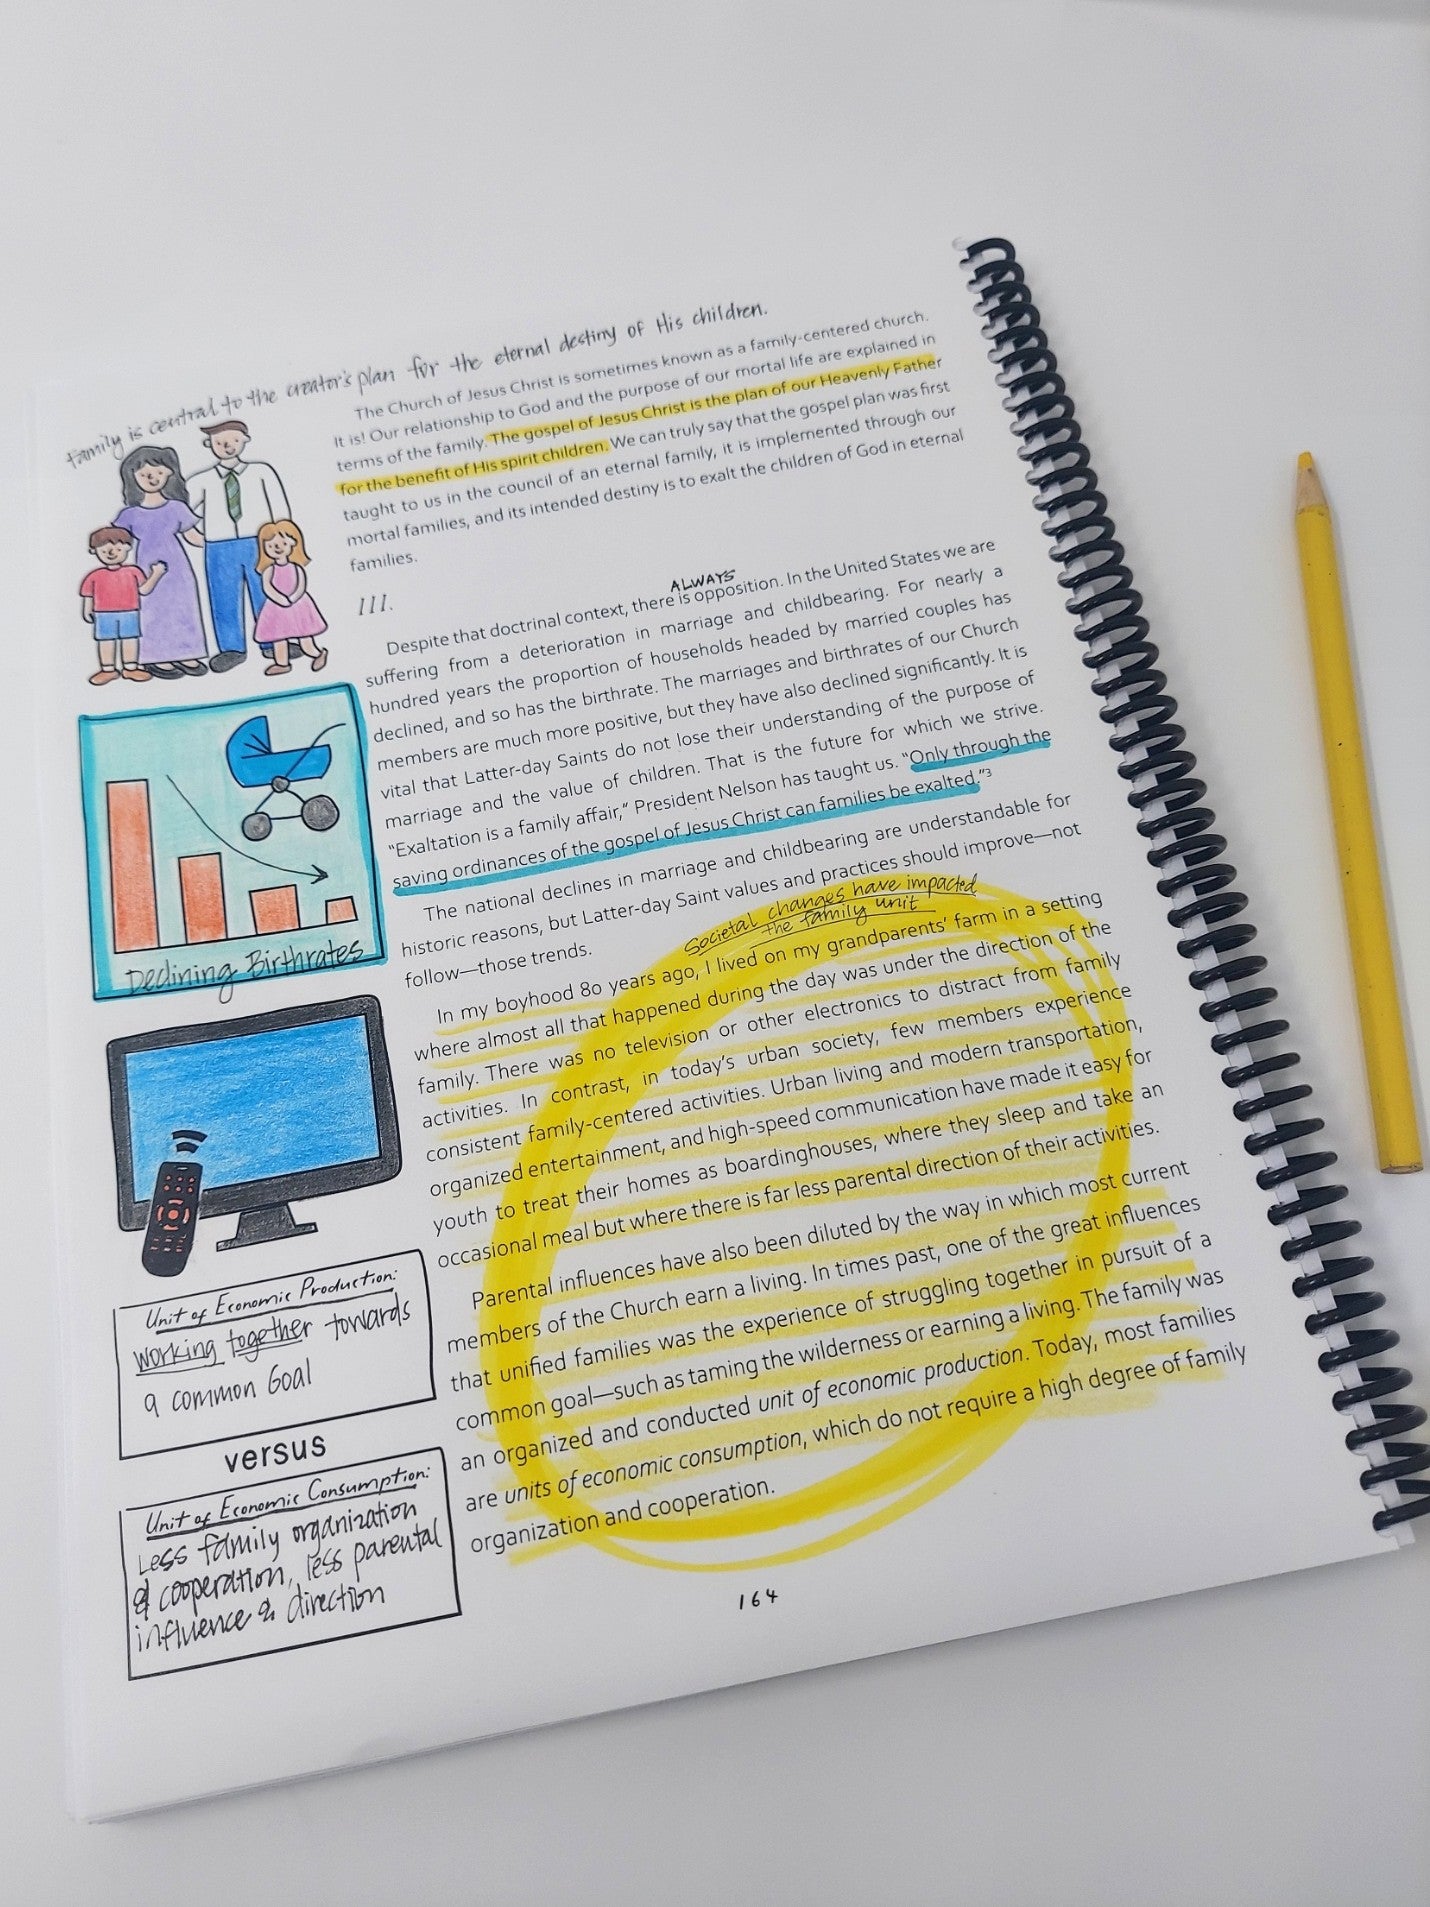 Family is central to the creator's plan for the eternal destiny of His children.
The Church of Jesus Christ is sometimes known as a family-centered church.
It is! Our relationship to God and the purpose of our mortal life are explained in
terms of the family. The gospel of Jesus Christ is the plan of our Heavenly Father
for the benefit of His spirit children. We can truly say that the gospel plan was first
taught to us in the council of an eternal family, it is implemented through our
mortal families, and its intended destiny is to exalt the children of God in eternal
families.
III.
ALWAYS
Despite that doctrinal context, there is opposition. In the United States we are
suffering from a deterioration in marriage and childbearing. For nearly a
hundred years the proportion of households headed by married couples has
declined, and so has the birthrate. The marriages and birthrates of our Church
members are much more positive, but they have also declined significantly. It is
vital that Latter-day Saints do not lose their understanding of the purpose of
marriage and the value of children. That is the future for which we strive.
"Exaltation is a family affair," President Nelson has taught us. "Only through the
saving ordinances of the gospel of Jesus Christ can families be exalted."3
The national declines in marriage and childbearing are understandable for
historic reasons, but Latter-day Saint values and practices should improve—not
follow—those trends.
Societal changes have impacted
the family unit
In my boyhood 80 years ago, I lived on my grandparents' farm in a setting
where almost all that happened during the day was under the direction of the
family. There was no television or other electronics to distract from family
activities. In contrast, in today's urban society, few members experience
consistent family-centered activities. Urban living and modern transportation,
organized entertainment, and high-speed communication have made it easy for
youth to treat their homes as boardinghouses, where they sleep and take an
occasional meal but where there is far less parental direction of their activities.
Parental influences have also been diluted by the way in which most current
members of the Church earn a living. In times past, one of the great influences
that unified families was the experience of struggling together in pursuit of a
common goal—such as taming the wilderness or earning a living. The family was
an organized and conducted unit of economic production. Today, most families
are units of economic consumption, which do not require a high degree of family
organization and cooperation.
Declining Birthrates
Unit of Economic Production:
working together towards
a common Goal
versus
Unit of Economic Consumption:
Less family organization
& cooperation, less parental
influence & direction
164